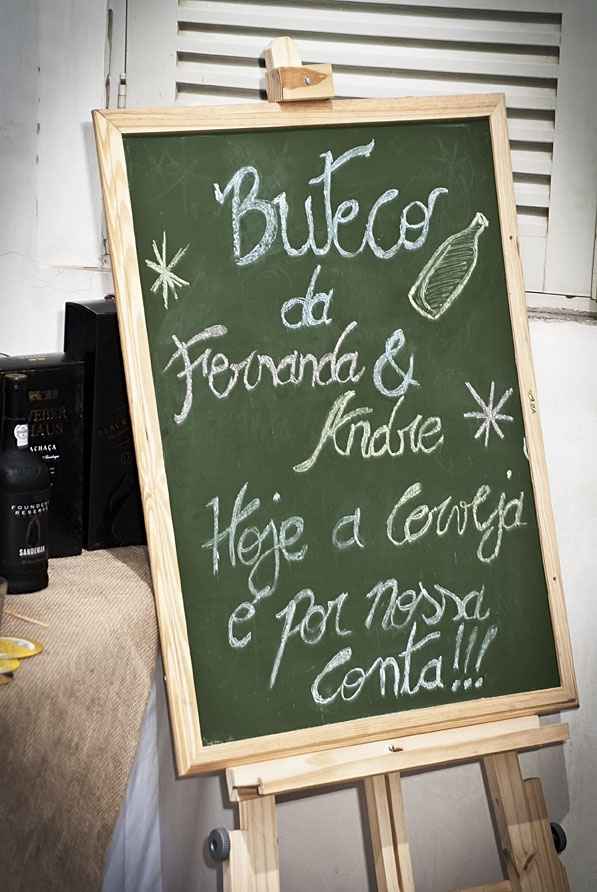 Buteco
da
Fernanda &
Andre
Hoje a Cerveja
é por nossa
Conta!!!
HAUS
CACHAÇA
FOUNDERS
RESERVE
SANDEMAN